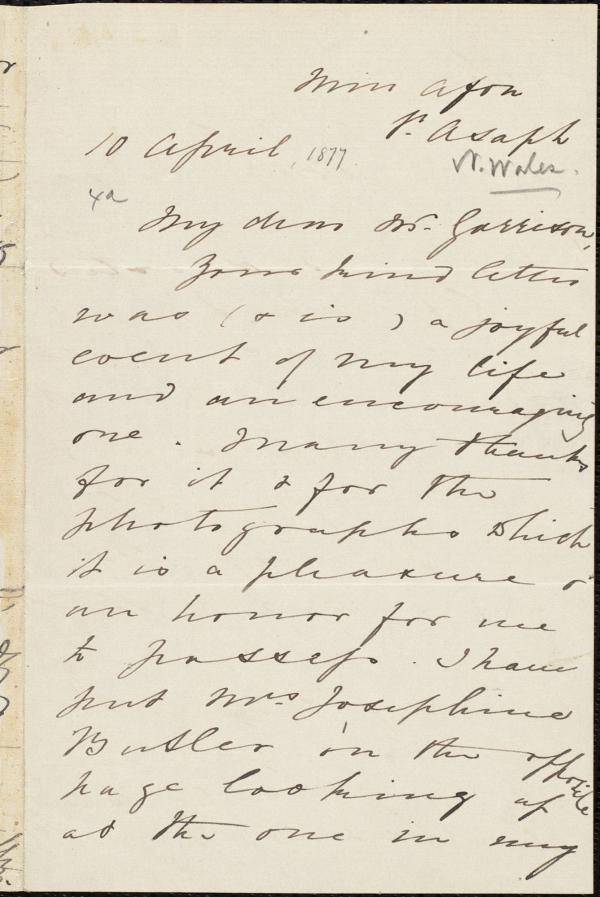 Min Afon
St. Asaph
10 April, 1877.
N. Wales.
4a
My dear Mr. Garrison,
Your kind letter
was (& is) a joyful
event of my life
and an encouraging
one. Many thanks
for it & for the
photographs which
it is a pleasure &
an honor for me
to possess. I have
put Mrs Josephine
Butler in the opposite
page looking up
at the one in my